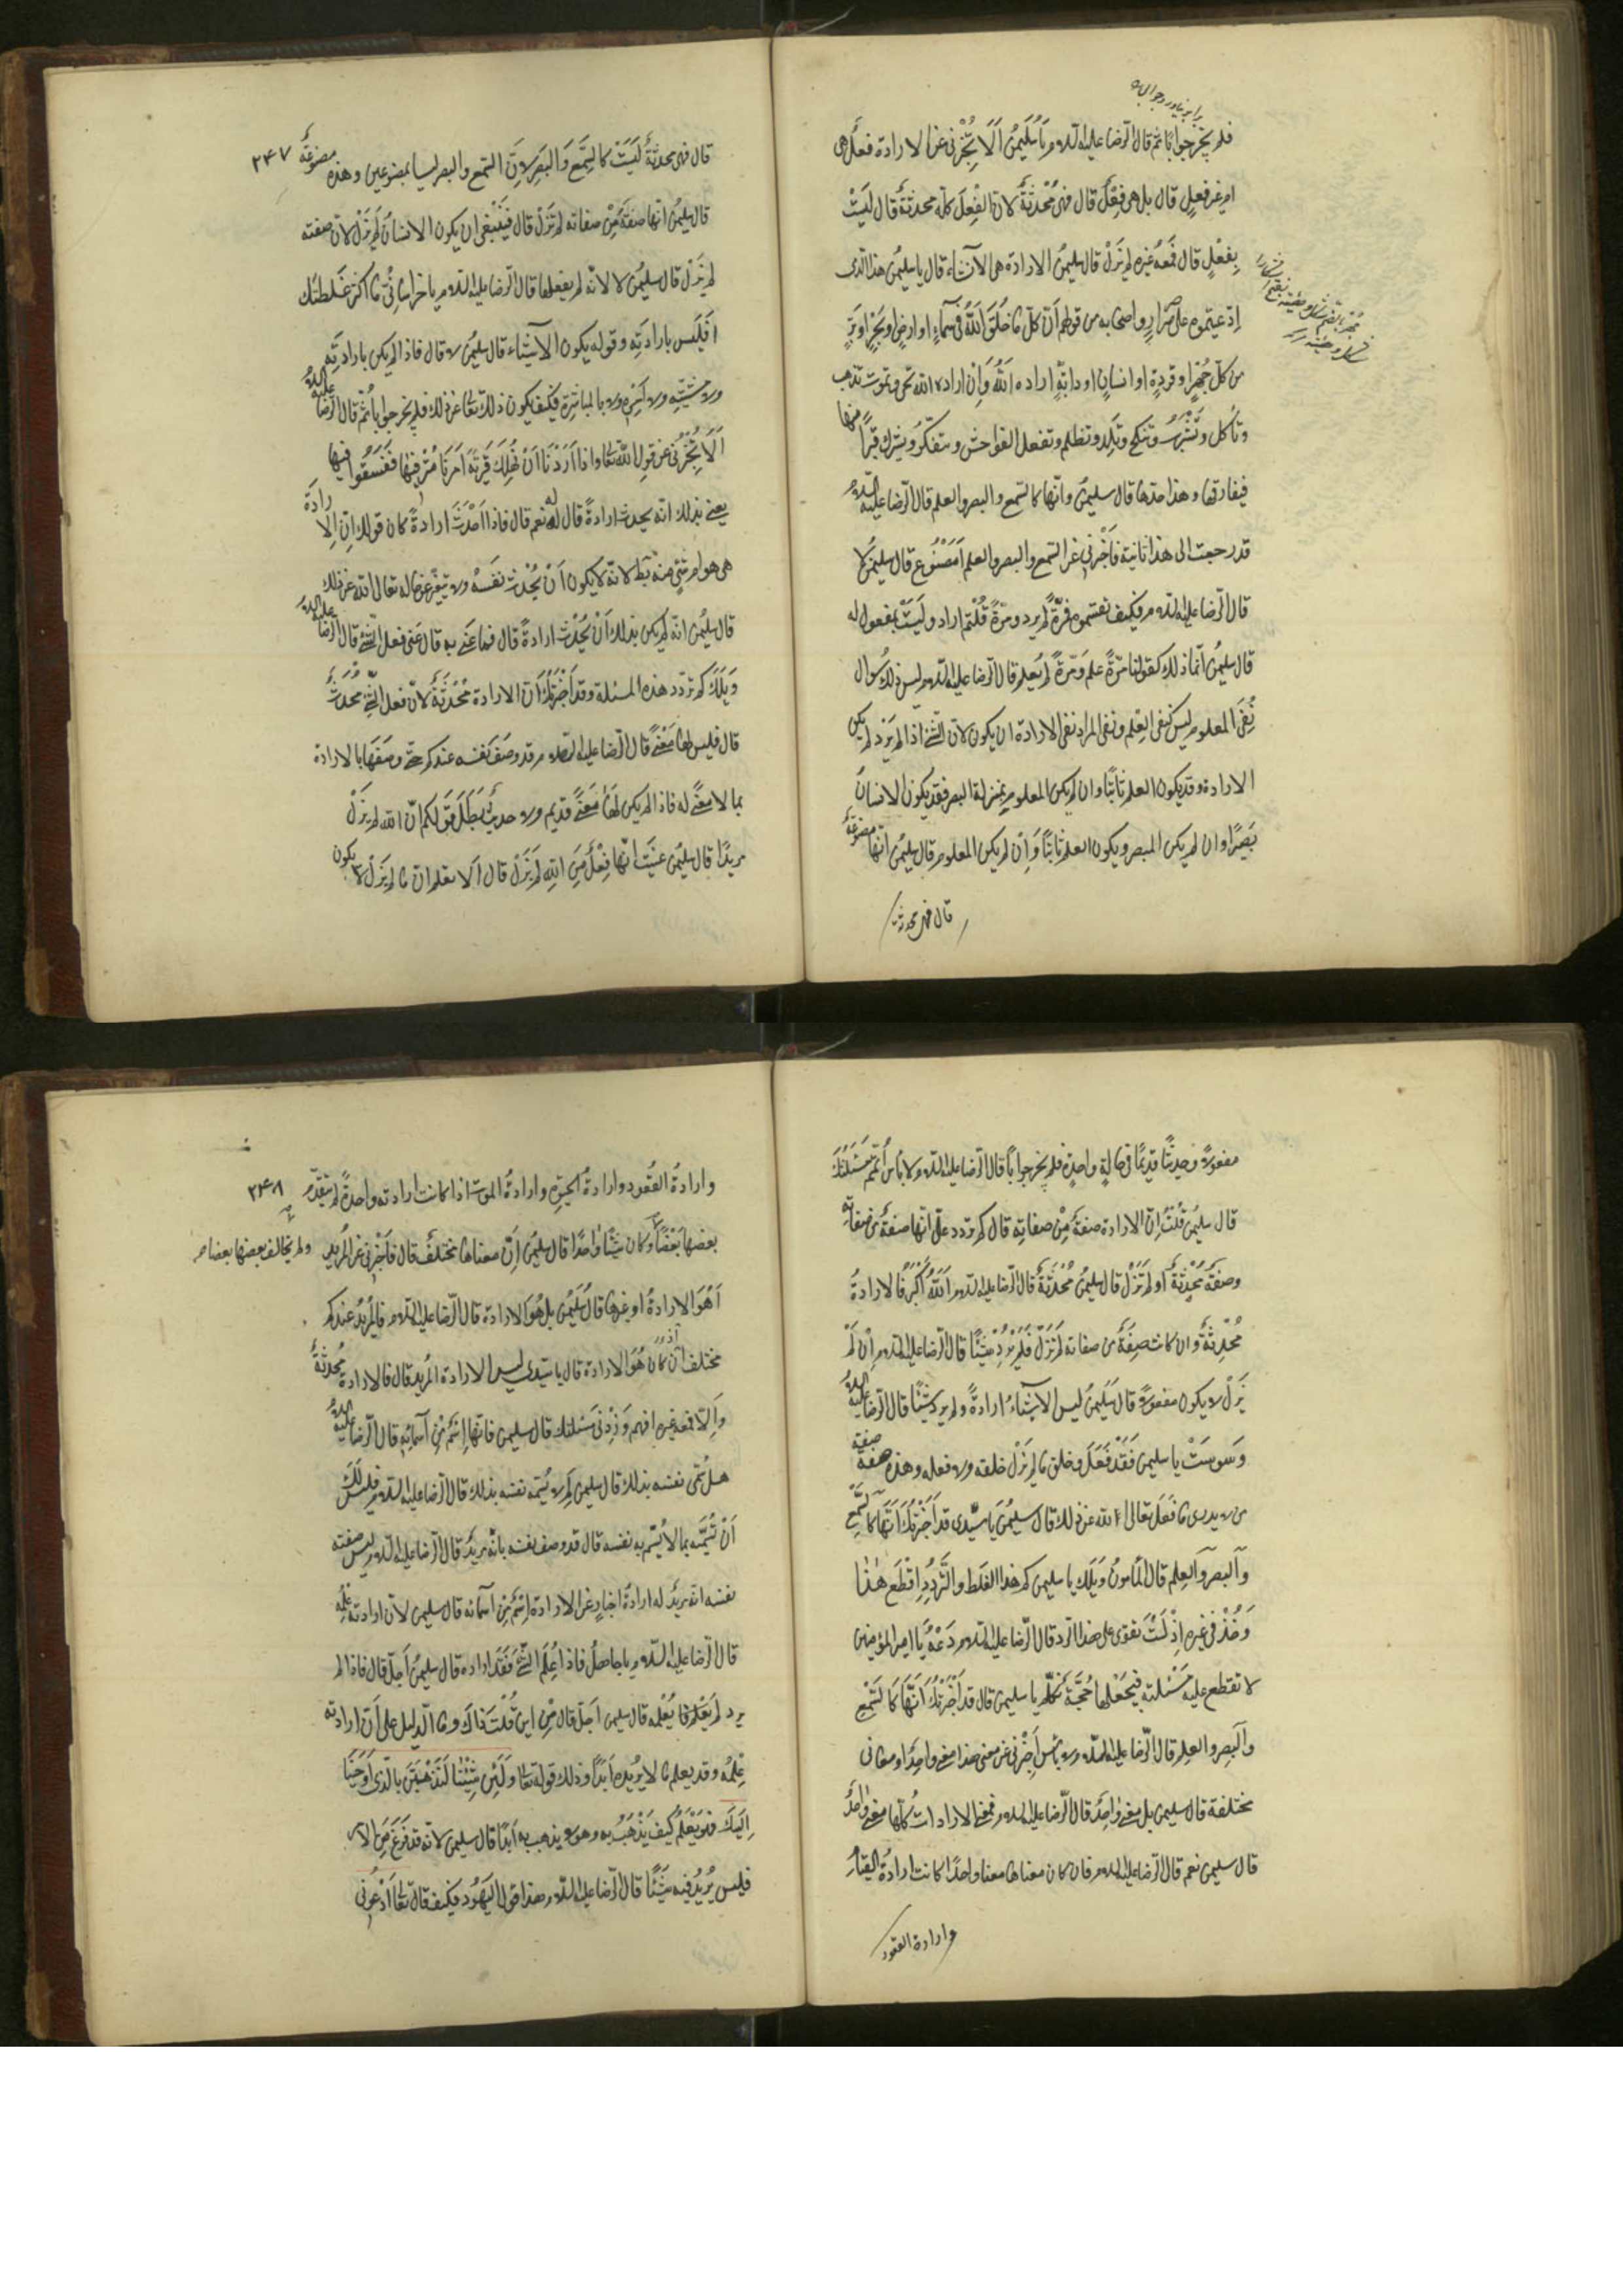 فلم يحر جوابًا ثم قال الرضا عليه السلام يا سليمن الا تخبرنى عن الارادة فعل هى
ام غير فعل قال بل هى فعل قال فهى محدثة لان الفعل كله محدث قال ليست
بفعل قال فمعه غيره لم يزل قال سليمن الارادة هى الانشاء قال يا سليمن هذا الذى
ادعيتموه على ضرار واصحابه من قولهم ان كل ما خلق الله فى سماء او ارض او بحر او بر
من كل خنزير او قردة او انسان او دابة ارادة الله وان ارادة الله تحيى وتموت تذهب
وتأكل وتشرب وتنكح وتلد وتظلم وتفعل الفواحش وتكفر وتشرك فيبرأ منها
فيفارقها وهذا حدها قال سليمن وانها كالسمع والبصر والعلم قال الرضا عليه السلام
قد رجعت الى هذا ثانية فاخبرنى عن السمع والبصر والعلم امصنوع قال سليمن لا
قال الرضا عليه السلام فكيف نفيتموه فمرة لم يرد ومرة قلتم اراد وليست بمفعول له
قال سليمن انما ذلك كقولنا مرة علم ومرة لم يعلم قال الرضا عليه السلام ليس ذلك سوال
نفى المعلوم ليس كنفى العلم ونفى المراد نفى الارادة ان يكون لان الشئ اذا لم يرد لم يكن
الارادة وقد يكون العلم ثابتًا وان لم يكن المعلوم بمنزلة البصر فقد يكون الانسان
بصيرًا وان لم يكن المبصر ويكون العلم ثابتًا وان لم يكن المعلوم قال سليمن انها مصنوعة
قال فهى محدثة
٢٤٧
قال فهى محدثة ليست كالسمع والبصر لان السمع والبصر ليسا بمصنوعين وهذه مصنوعة
قال سليمن انها صفة من صفاته لم تزل قال فينبغى ان يكون الانسان لم يزل لان صفته
لم تزل قال سليمن لا لانه لم يفعلها قال الرضا عليه السلام يا خراسانى ما اكثر غلطتك
افليس بارادته وقوله يكون الاشياء قال سليمن لا قال فاذا لم يكن بارادته
ولا مشيته ولا امره ولا بالمباشرة فكيف يكون ذلك تعالى عن ذلك فلم يحر جوابًا ثم قال الرضا عليه السلام
الا تخبرنى عن قول الله تعالى واذا اردنا ان نهلك قرية امرنا مترفيها ففسقوا فيها
يعنى بذلك انه يحدث ارادة قال له نعم قال فاذا احدث ارادة كان قولك ان الارادة
هى هو ام شئ منه باطلا لانه لا يكون ان يحدث نفسه ولا يتغير عن حاله تعالى الله عن ذلك
قال سليمن انه لم يكن بذلك ان يحدث ارادة قال فما عنى به قال عنى فعل الشئ قال الرضا عليه السلام
ويلك كم تردد هذه المسئلة وقد اخبرتك ان الارادة محدثة لان فعل الشئ محدث
قال فليس لها معنى قال الرضا عليه السلام قد وصف نفسه عندكم حتى وصفها بالارادة
بما لا معنى له فاذا لم يكن لها معنى قديم ولا حديث بطل قولكم ان الله لم يزل
مريدًا قال سليمن عنيت انها فعل من الله لم يزل قال الا تعلم ان ما لم يزل لا يكون
مفعولا وحديثًا قديمًا فى حالة واحدة فلم يحر جوابًا قال الرضا عليه السلام لا بأس اتمم مسئلتك
قال سليمن قلت ان الارادة صفة من صفاته قال كم تردد على انها صفة من صفاته
وصفته محدثة او لم تزل قال سليمن محدثة قال الرضا عليه السلام الله اكبر فالارادة
محدثة وان كانت صفة من صفاته لم تزل فلم يرد شيئًا قال الرضا عليه السلام ان لم
يزل لا يكون مفعولا قال سليمن ليس الاشياء ارادة ولم يرد شيئًا قال الرضا عليه السلام
وسوست يا سليمن فقد فعل وخلق ما لم يزل خلقه ولا فعله وهذه صفة
من لا يدرى ما فعل تعالى الله عن ذلك قال سليمن يا سيدى قد اخبرتك انها كالسمع
والبصر والعلم قال المأمون ويلك يا سليمن كم هذا الغلط والتردد اقطع هذا
وخذ فى غيره اذ لست تقوى على هذا الرد قال الرضا عليه السلام دعه يا امير المؤمنين
لا تقطع عليه مسئلته فيجعلها حجة تكلم يا سليمن قال قد اخبرتك انها كالسمع
والبصر والعلم قال الرضا عليه السلام لا بأس اخبرنى عن معنى هذا امعنى واحدًا او معانى
مختلفة قال سليمن بل معنى واحد قال الرضا عليه السلام فمعنى الارادات كلها معنى واحد
قال سليمن نعم قال الرضا عليه السلام فان كان معناها معنا واحدًا كانت ارادة القيام
وارادة القعود
٢٤٨
وارادة القعود وارادة الحيوة وارادة الموت اذا كانت ارادته واحدة لم يتقدم
بعضها بعضًا وكان شيئًا واحدًا قال سليمن ان معناها مختلف قال فاخبرنى عن المريد
ولم يخالف بعضها بعضا
اهو الارادة او غيرها قال سليمن بل هو الارادة قال الرضا عليه السلام فالمريد عندكم
مختلف اذ كان هو الارادة قال يا سيدى ليس الارادة المريد قال فالارادة محدثة
والا فمعه غيره افهم وزد فى مسئلتك قال سليمن فانها اسم من اسمائه قال الرضا عليه السلام
هل سمى نفسه بذلك قال سليمن لا لم يسم نفسه بذلك قال الرضا عليه السلام فليس لك
ان تسميه بما لا يسم به نفسه قال قد وصف نفسه بانه مريد قال الرضا عليه السلام ليس صفته
نفسه انه مريد له ارادة اخبار عن الارادة اسم من اسمائه قال سليمن لان ارادته علمه
قال الرضا عليه السلام يا جاهل فاذا علم الشئ فقد اراده قال سليمن اجل قال فاذا لم
يرد لم يعلم فا يعلمه قال سليمن اجل قال من اين قلت ذاك وما الدليل على ان ارادته
علمه وقد يعلم ما لا يريده ابدًا وذلك قوله تعالى ولئن شئنا لنذهبن بالذى اوحينا
اليك فهو يعلم كيف يذهب به وهو لا يذهب به ابدًا قال سليمن لانه قد فرغ من الامر
فليس يريد فيه شيئًا قال الرضا عليه السلام هذا قول اليهود فكيف قال تعالى ادعونى